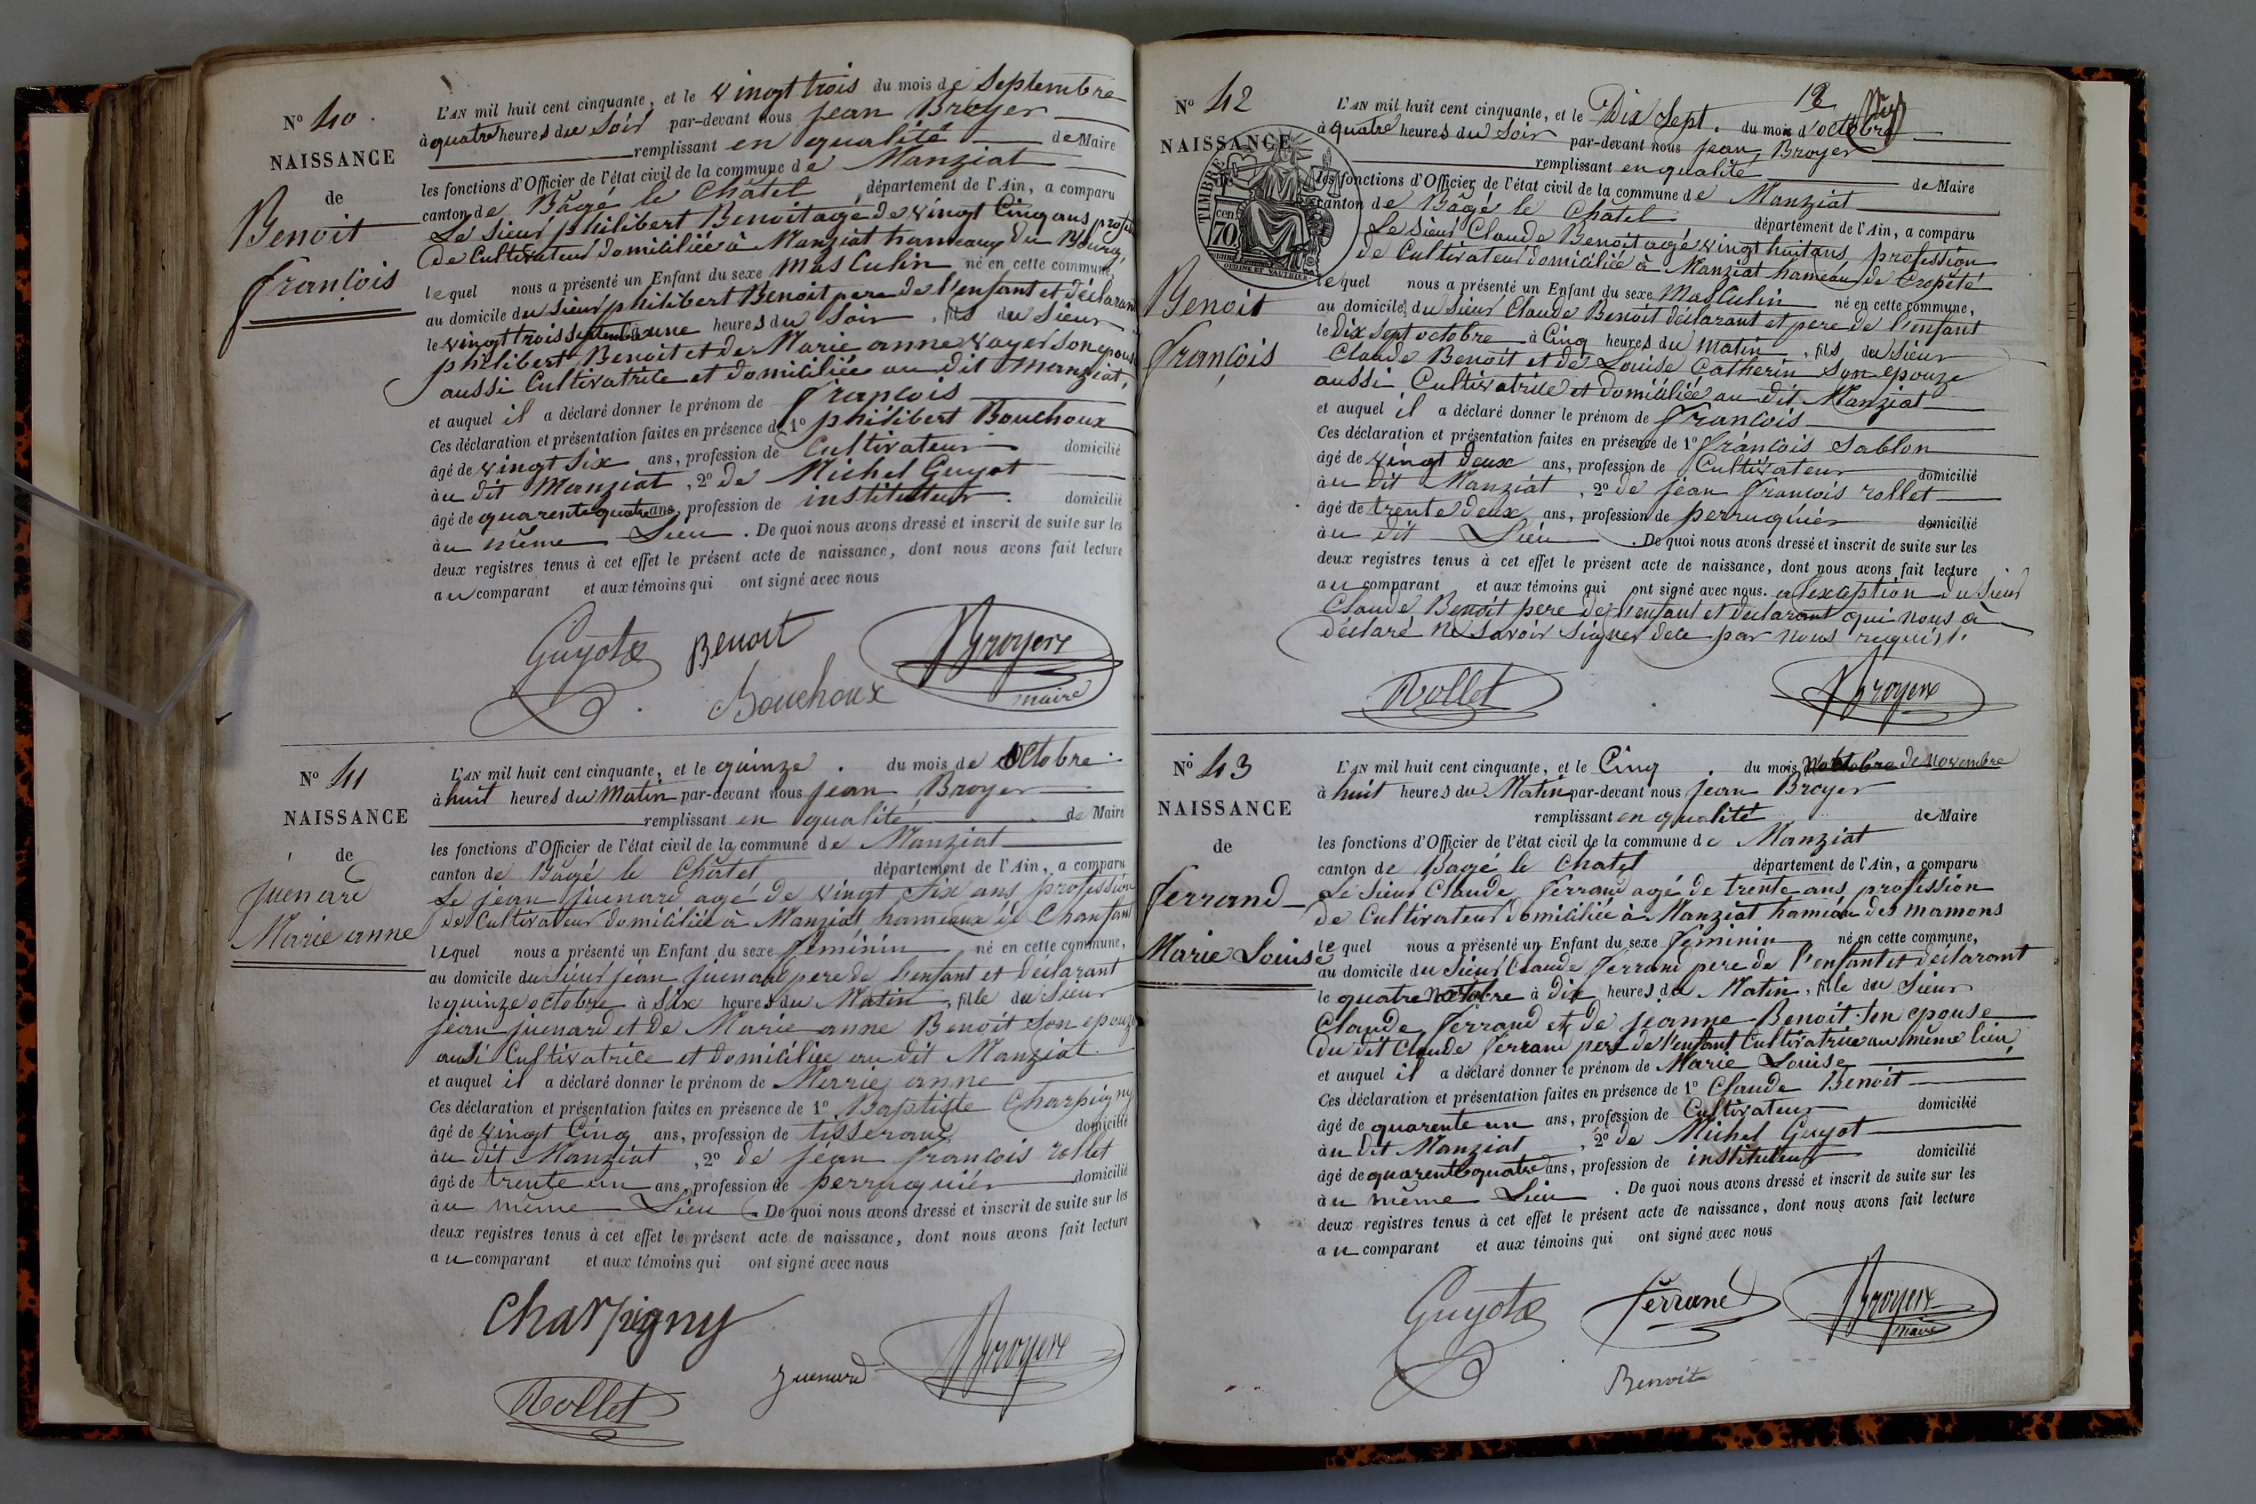 N° 40
NAISSANCE
de
Benoit
françois
L'AN mil huit cent cinquante, et le vingt trois du mois de Septembre
à quatre heures du Soir par-devant nous jean Broyer
remplissant en qualité de Maire
les fonctions d'Officier de l'état civil de la commune de Manziat
canton de Bâgé le Châtel département de l'Ain, a comparu
Le Sieur philibert Benoit agé de vingt Cinq ans profession
de Cultivateur domiciliée à Manziat hameaux du Bourg,
lequel nous a présenté un Enfant du sexe Masculin né en cette commune,
au domicile du Sieur philibert Benoit pere de l'enfant et déclarant
le vingt trois Septembre à une heures du Soir, fils du Sieur
philibert Benoit et de Marie anne vayer son epouse
aussi Cultivatrice et domiciliée au dit manziat,
et auquel il a déclaré donner le prénom de françois
Ces déclaration et présentation faites en présence de 1° philibert Bouchoux
âgé de vingt Six ans, profession de Cultivateur domicilié
au dit Manziat, 2° de Michel Guyot
âgé de quarente quatre ans, profession de instituteur domicilié
au même Lieu. De quoi nous avons dressé et inscrit de suite sur les
deux registres tenus à cet effet le présent acte de naissance, dont nous avons fait lecture
au comparant et aux témoins qui ont signé avec nous
Guyot Benoit Broyer
Bouchoux maire
N° 41
NAISSANCE
de
juenard
Marie anne
L'AN mil huit cent cinquante, et le quinze. du mois de Octobre
à huit heures du Matin par-devant nous jean Broyer
remplissant en qualité de Maire
les fonctions d'Officier de l'état civil de la commune de Manziat
canton de Bâgé le Châtel département de l'Ain, a comparu
Le jean juenard agé de vingt Six ans profession
de Cultivateur domiciliée à Manziat hameaux de Chanfant
lequel nous a présenté un Enfant du sexe féminin né en cette commune,
au domicile du Sieur jean juenard pere de l'enfant et déclarant
le quinze octobre à Six heures du Matin, fille du Sieur
jean juenard et de Marie anne Benoit Son epouze
aussi Cultivatrice et domiciliée au dit Manziat
et auquel il a déclaré donner le prénom de Marie anne
Ces déclaration et présentation faites en présence de 1° Baptiste Charpigny
âgé de vingt Cinq ans, profession de tisserand domicilié
au dit Manziat, 2° de jean françois rollet
âgé de trente un ans, profession de perruquiér domicilié
au même Lieu. De quoi nous avons dressé et inscrit de suite sur les
deux registres tenus à cet effet le présent acte de naissance, dont nous avons fait lecture
au comparant et aux témoins qui ont signé avec nous
Charpigny
juenard Broyer
Rollet
12
N° 42
NAISSANCE
de
TIMBRE
cen. 70
Benoit
françois
L'AN mil huit cent cinquante, et le Dix Sept. du mois d'octobre
à quatre heures du Soir par-devant nous jean Broyer
remplissant en qualité de Maire
les fonctions d'Officier de l'état civil de la commune de Manziat
canton de Bâgé le Châtel département de l'Ain, a comparu
Le Sieur Claude Benoit agé vingt huit ans profession
de Cultivateur domiciliée à Manziat hameau de Cropété
lequel nous a présenté un Enfant du sexe Masculin né en cette commune,
au domicile du Sieur Claude Benoit déclarant et pere de l'enfant
le Dix Sept octobre à Cinq heures du matin, fils du Sieur
Claude Benoit et de Louise Catherin Son epouze
aussi Cultivatrice et domiciliée au dit Manziat
et auquel il a déclaré donner le prénom de françois
Ces déclaration et présentation faites en présence de 1° françois Sablon
âgé de vingt deux ans, profession de Cultivateur domicilié
au dit Manziat, 2° de jean françois rollet
âgé de trente deux ans, profession de perruquiér domicilié
au dit Liéu. De quoi nous avons dressé et inscrit de suite sur les
deux registres tenus à cet effet le présent acte de naissance, dont nous avons fait lecture
au comparant et aux témoins qui ont signé avec nous. a l'exception du Sieur
Claude Benoit pere de l'enfant et declarant qui nous a
déclaré ne Savoir Signer de ce par nous requis.
Rollet Broyer
N° 43
NAISSANCE
de
ferrand
Marie Louise
L'AN mil huit cent cinquante, et le Cinq. du mois de Novembre
à huit heures du Matin par-devant nous jean Broyer
remplissant en qualité de Maire
les fonctions d'Officier de l'état civil de la commune de Manziat
canton de Bagé le Chatel département de l'Ain, a comparu
Le Sieur Claude ferrand agé de trente ans profession
de Cultivateur domiciliée à Manziat haméau des mamons
lequel nous a présenté un Enfant du sexe féminin né en cette commune,
au domicile du Sieur Claude ferrand pere de l'enfant et déclarant
le quatre à Dix heures du Matin, fille du Sieur
Claude ferrand et de jeanne Benoit Son epouse
du dit Claude ferrand pere de l'enfant Cultivatrice au même lieu
et auquel il a déclaré donner le prénom de Marie Louise
Ces déclaration et présentation faites en présence de 1° Claude Benoit
âgé de quarente un ans, profession de Cultivateur domicilié
au dit Manziat, 2° de Michel Guyot
âgé de quarente quatre ans, profession de instituteur domicilié
au même Lieu. De quoi nous avons dressé et inscrit de suite sur les
deux registres tenus à cet effet le présent acte de naissance, dont nous avons fait lecture
au comparant et aux témoins qui ont signé avec nous
Guyot ferrand Broyer
maire
Benoit